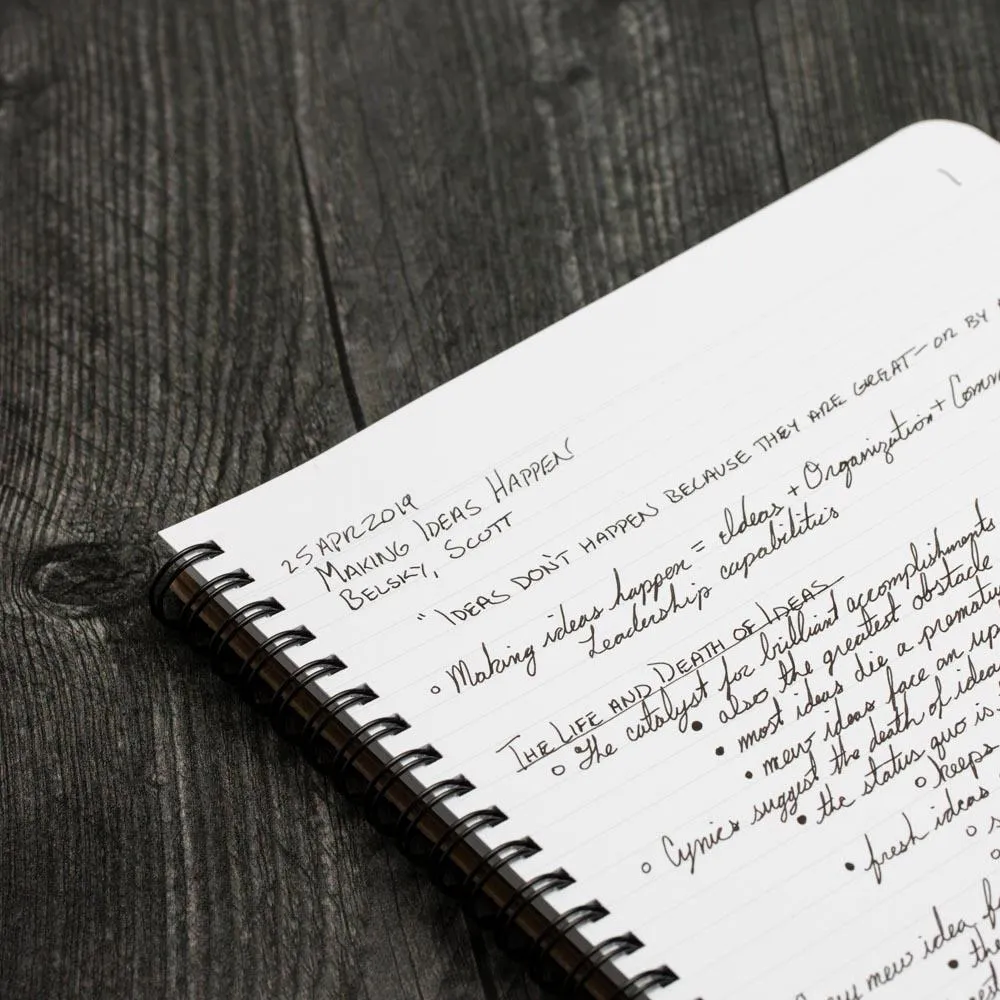 25 APR 2019
MAKING IDEAS HAPPEN
BELSKY, SCOTT
"IDEAS DON'T HAPPEN BECAUSE THEY ARE GREAT — OR BY
◦ Making ideas happen = Ideas + Organization + Comm
Leadership capabilities
THE LIFE AND DEATH OF IDEAS
◦ The catalyst for brilliant accomplishments
• also the greatest obstacle
• most ideas die a prematu
• new ideas face an up
◦ Cynics suggest the death of idea
• the status quo is
◦ keeps
• fresh ideas
◦ s
new idea, f
• the